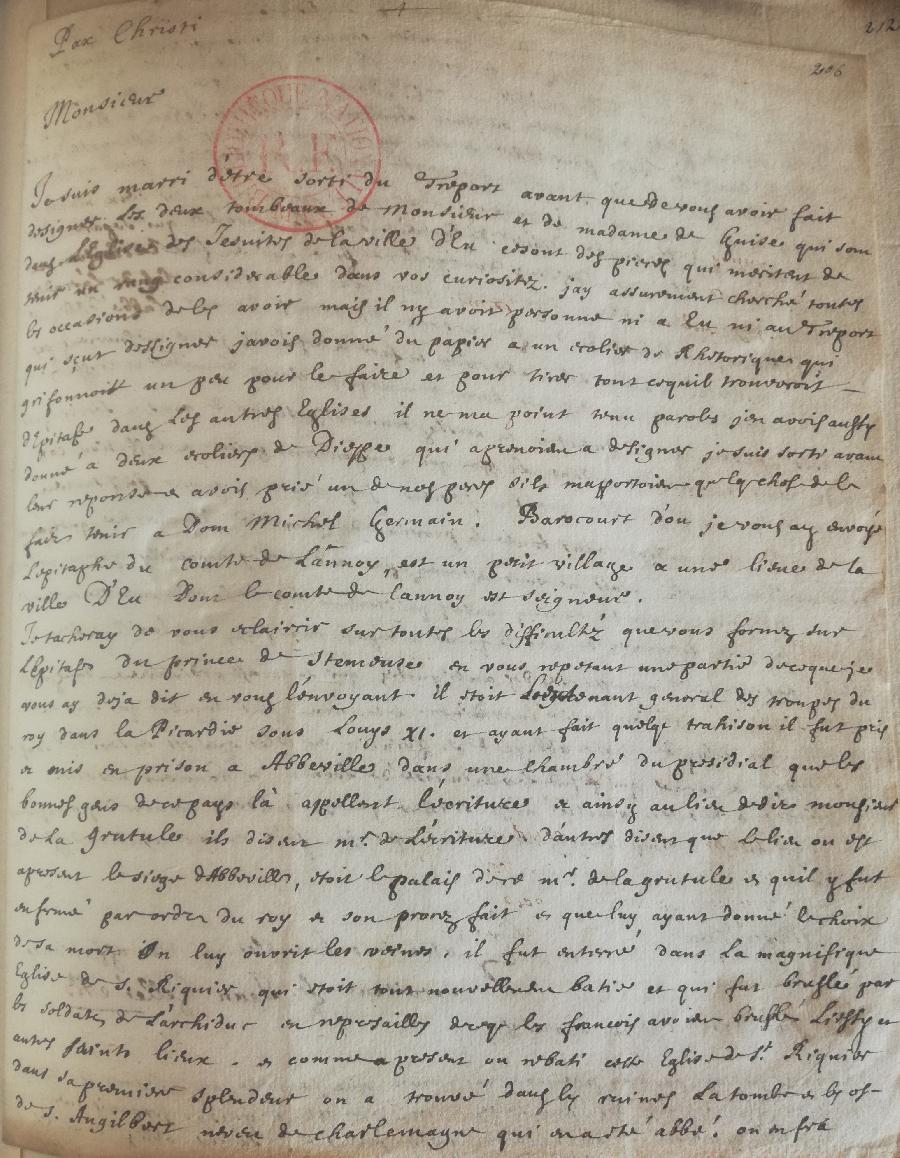 Pax Christi
212
206
Monsieur
BIBLIOTHEQUE NATIONALE
R.F.
Je suis marri d'être sorti du Tréport avant que de vous avoir fait
designer les deux tombeaux de Monsieur et de madame de Guise qui sont
dans L'Eglise des Jesuites de la ville D'Eu cesont des pieces qui meritent de
tenir un rang considerable dans vos curiositez. jay assurement cherché toutes
les occasions de les avoir mais il ny avoit personne ni a Eu ni au Treport
qui sçut dessigner javois donné du papier a un ecolier de Rhetorique qui
grifonnoit un peu pour le faire et pour tirer tout cequil trouveroit
d'Epitafe dans Les autres Eglises il ne ma point tenu parole jen avois aussy
donné a deux ecoliers de Dieppe qui aprenoien a designer je suis sorti avant
leur reponse et avois prié un de nos peres sils mapportoien quelq chose de le
faire tenir a Dom Michel Germain. Barocourt d'ou je vous ay envoyé
Lepitaphe du comte de Lannoy, est un petit village a une lieue de la
ville D'Eu Dont le comte de Lannoy est seigneur.
Je tacheray de vous eclaircir sur toutes les difficultéz que vous formez sur
L'Epitafe du prince de Stemeuse en vous repetant une partie de ce que je
vous ay deja dit en vous l'envoyant il etoit Lieutenant general des troupes du
roy dans la Picardie sous Louys XI. et ayant fait quelqe trahison il fut pris
et mis en prison a Abbeville dans une chambre du presidial que les
bonnes gens de ce pays là appellent l'écriture et ainsy au lieu de dire monsieur
de La grutule ils disent mr. de L'écriture. d'autres disent que le lieu ou est
apresent le siege d'Abbeville, etoit le palais de ce mr. de la grutule et quil y fut
enfermé par ordre du roy et son procez fait et que luy ayant donné le choix
de sa mort on luy ouvrit les veines. il fut enterré dans La magnifique
Eglise de S. Riquier qui etoit tout nouvellement batie et qui fut bruslée par
les soldats de L'archiduc en represailles de ce qe les françois avoien bruslé Liessy et
autres saints lieux. et comme apresent on rebati cette Eglise de St. Riquier
dans sa premiere splendeur on a trouvé dans les ruines La tombe et les os
de S. Angilbert neveu de charlemagne qui en a été abbé. on